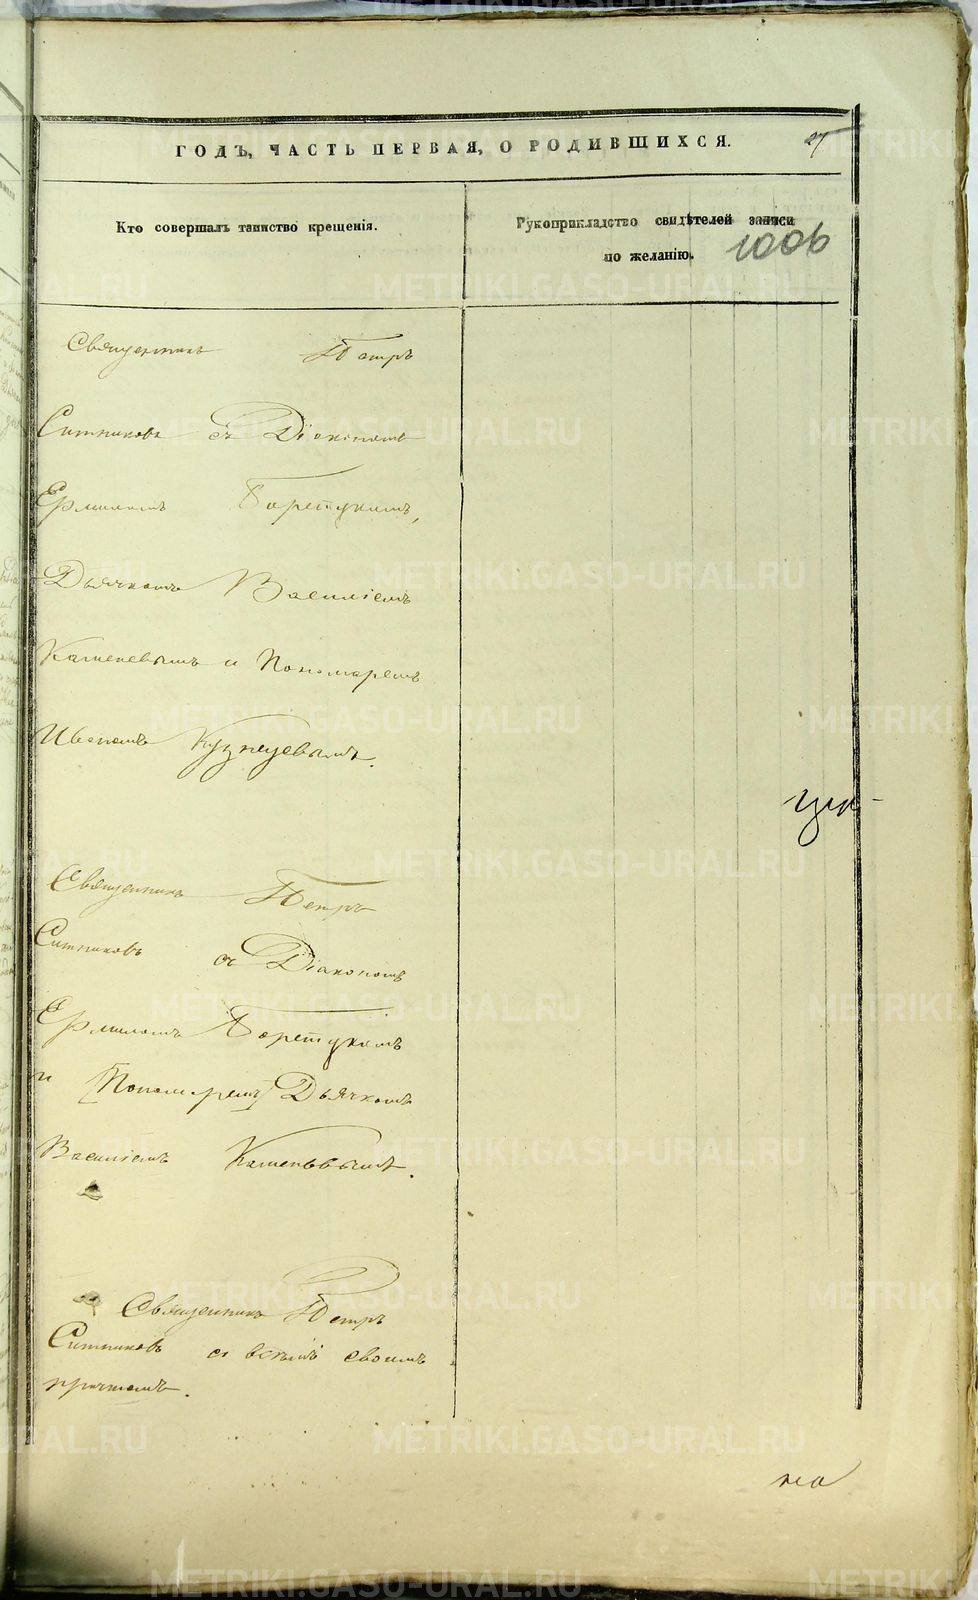 ГОДЪ, ЧАСТЬ ПЕРВАЯ, О РОДИВШИХСЯ.
27
Кто совершалъ таинство крещенія.
Рукоприкладство свидѣтелей записи
по желанію.
1006
Священникъ Петръ
Ситниковъ съ Діакономъ
Ермиломъ Борецкимъ,
Дьячкомъ Василіемъ
Каменевымъ и Пономаремъ
Иваномъ Кузнецевымъ.
Священникъ Петръ
Ситниковъ съ Діакономъ
Ермиломъ Борецкимъ
и [Пономаремъ] Дьячкомъ
Василіемъ Каменевымъ.
Священникъ Петръ
Ситниковъ съ всѣмъ своимъ
причтомъ.
METRIKI.GASO-URAL.RU